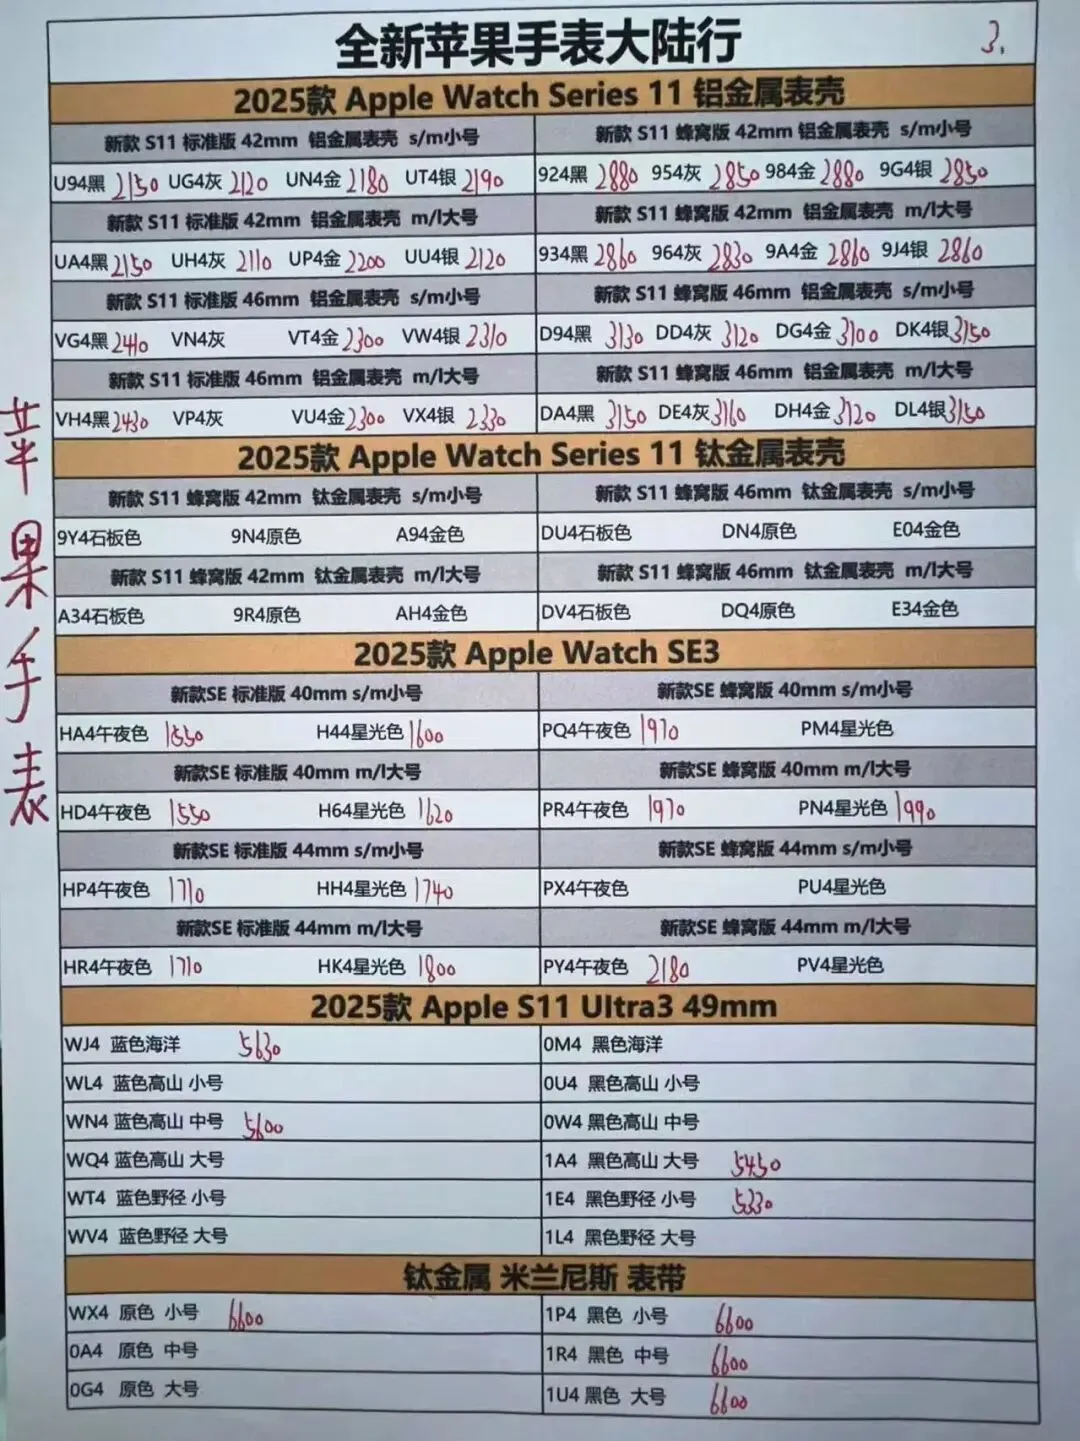 全新苹果手表大陆行
3.
2025款 Apple Watch Series 11 铝金属表壳
新款 S11 标准版 42mm 铝金属表壳 s/m小号
新款 S11 蜂窝版 42mm 铝金属表壳 s/m小号
U94黑 2150 UG4灰 2120 UN4金 2180 UT4银 2190
924黑 2880 954灰 2850 984金 2880 9G4银 2850
新款 S11 标准版 42mm 铝金属表壳 m/l大号
新款 S11 蜂窝版 42mm 铝金属表壳 m/l大号
UA4黑 2150 UH4灰 2110 UP4金 2200 UU4银 2120
934黑 2860 964灰 2830 9A4金 2860 9J4银 2860
新款 S11 标准版 46mm 铝金属表壳 s/m小号
新款 S11 蜂窝版 46mm 铝金属表壳 s/m小号
VG4黑 2410 VN4灰 VT4金 2300 VW4银 2310
D94黑 3130 DD4灰 3120 DG4金 3100 DK4银 3150
新款 S11 标准版 46mm 铝金属表壳 m/l大号
新款 S11 蜂窝版 46mm 铝金属表壳 m/l大号
VH4黑 2430 VP4灰 VU4金 2300 VX4银 2330
DA4黑 3150 DE4灰 3160 DH4金 3120 DL4银 3150
2025款 Apple Watch Series 11 钛金属表壳
新款 S11 蜂窝版 42mm 钛金属表壳 s/m小号
新款 S11 蜂窝版 46mm 钛金属表壳 s/m小号
9Y4石板色 9N4原色 A94金色
DU4石板色 DN4原色 E04金色
新款 S11 蜂窝版 42mm 钛金属表壳 m/l大号
新款 S11 蜂窝版 46mm 钛金属表壳 m/l大号
A34石板色 9R4原色 AH4金色
DV4石板色 DQ4原色 E34金色
2025款 Apple Watch SE3
新款SE 标准版 40mm s/m小号
新款SE 蜂窝版 40mm s/m小号
HA4午夜色 1550 H44星光色 1600
PQ4午夜色 1970 PM4星光色
新款SE 标准版 40mm m/l大号
新款SE 蜂窝版 40mm m/l大号
HD4午夜色 1550 H64星光色 1620
PR4午夜色 1970 PN4星光色 1990
新款SE 标准版 44mm s/m小号
新款SE 蜂窝版 44mm s/m小号
HP4午夜色 1710 HH4星光色 1740
PX4午夜色 PU4星光色
新款SE 标准版 44mm m/l大号
新款SE 蜂窝版 44mm m/l大号
HR4午夜色 1710 HK4星光色 1800
PY4午夜色 2180 PV4星光色
2025款 Apple S11 Ultra3 49mm
WJ4 蓝色海洋 5630
0M4 黑色海洋
WL4 蓝色高山 小号
0U4 黑色高山 小号
WN4 蓝色高山 中号 5600
0W4 黑色高山 中号
WQ4 蓝色高山 大号
1A4 黑色高山 大号 5450
WT4 蓝色野径 小号
1E4 黑色野径 小号 5330
WV4 蓝色野径 大号
1L4 黑色野径 大号
钛金属 米兰尼斯 表带
WX4 原色 小号 6600
1P4 黑色 小号 6600
0A4 原色 中号
1R4 黑色 中号 6600
0G4 原色 大号
1U4 黑色 大号 6600
苹果手表